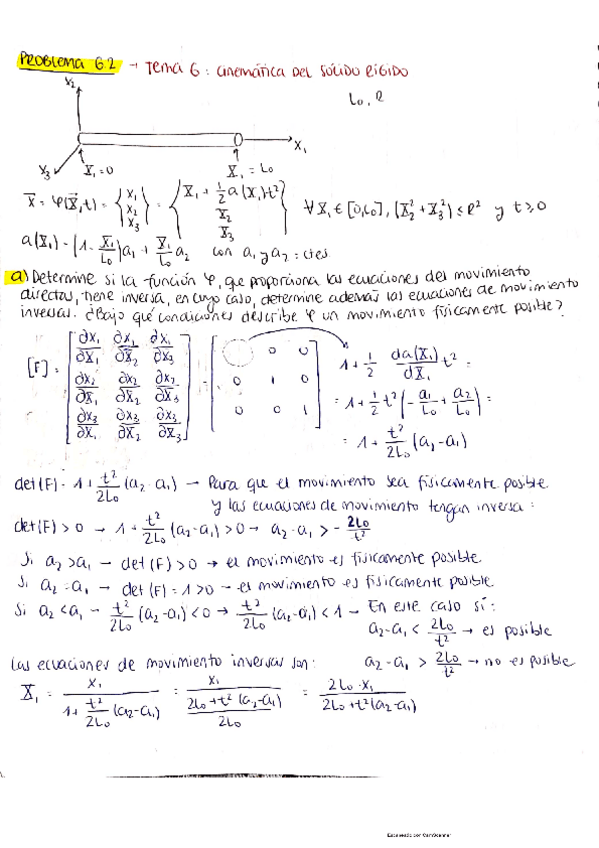 PROBLEMA 6.2 → TEMA 6: CINEMÁTICA DEL SÓLIDO RÍGIDO
L₀, R
X₂
X₁
X₃ X̄₁=0 X̄₁ = L₀
x̄ = φ(X̄,t) = {x₁ x₂ x₃} = {X̄₁ + 1/2 a(X̄₁)t² X̄₂ X̄₃} ∀ X̄₁ ∈ [0,L₀], (X̄₂²+X̄₃²) ≤ R² y t ≥ 0
a(X̄₁) = (1 - X̄₁/L₀)a₁ + X̄₁/L₀ a₂ con a₁ y a₂ = ctes
a) Determine si la función φ, que proporciona las ecuaciones del movimiento
directas, tiene inversa, en cuyo caso, determine además las ecuaciones de movimiento
inversas. ¿Bajo qué condiciones describe φ un movimiento físicamente posible?
[F] = [∂x₁/∂X̄₁ ∂x₁/∂X̄₂ ∂x₁/∂X̄₃ ∂x₂/∂X̄₁ ∂x₂/∂X̄₂ ∂x₂/∂X̄₃ ∂x₃/∂X̄₁ ∂x₃/∂X̄₂ ∂x₃/∂X̄₃] = [0 0 0 1 0 0 0 1] 1 + 1/2 da(X̄₁)/dX̄₁ t² =
= 1 + 1/2 t² (-a₁/L₀ + a₂/L₀) =
= 1 + t²/2L₀ (a₂-a₁)
det(F) = 1 + t²/2L₀ (a₂-a₁) → Para que el movimiento sea físicamente posible
y las ecuaciones de movimiento tengan inversa:
det(F) > 0 → 1 + t²/2L₀ (a₂-a₁) > 0 → a₂-a₁ > - 2L₀/t²
Si a₂ > a₁ → det(F) > 0 → el movimiento es físicamente posible.
Si a₂ = a₁ → det(F) = 1 > 0 → el movimiento es físicamente posible
Si a₂ < a₁ → t²/2L₀ (a₂-a₁) < 0 → t²/2L₀ (a₂-a₁) < 1 → En este caso si:
a₂-a₁ < 2L₀/t² → es posible
Las ecuaciones de movimiento inversas son: a₂-a₁ > 2L₀/t² → no es posible
X̄₁ = x₁/(1 + t²/2L₀ (a₂-a₁)) = x₁/((2L₀+t²(a₂-a₁))/2L₀) = 2L₀·x₁/(2L₀+t²(a₂-a₁))
Escaneado con CamScanner